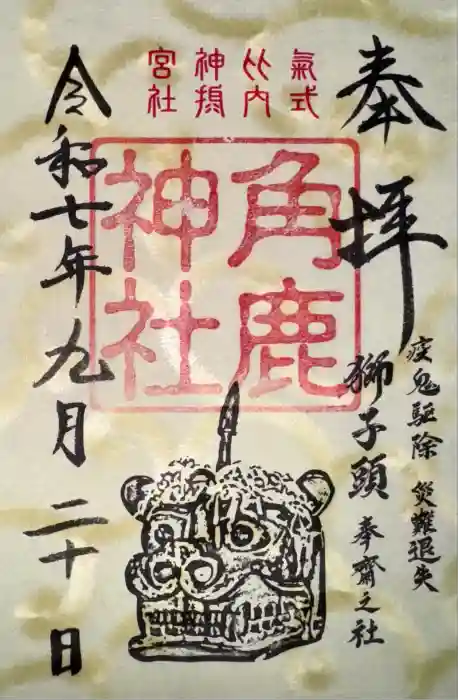 奉拝
疫鬼駆除 災難退失
獅子頭 奉齋之社
式内
神社
宮社
角鹿
神社
令和七年九月二十日